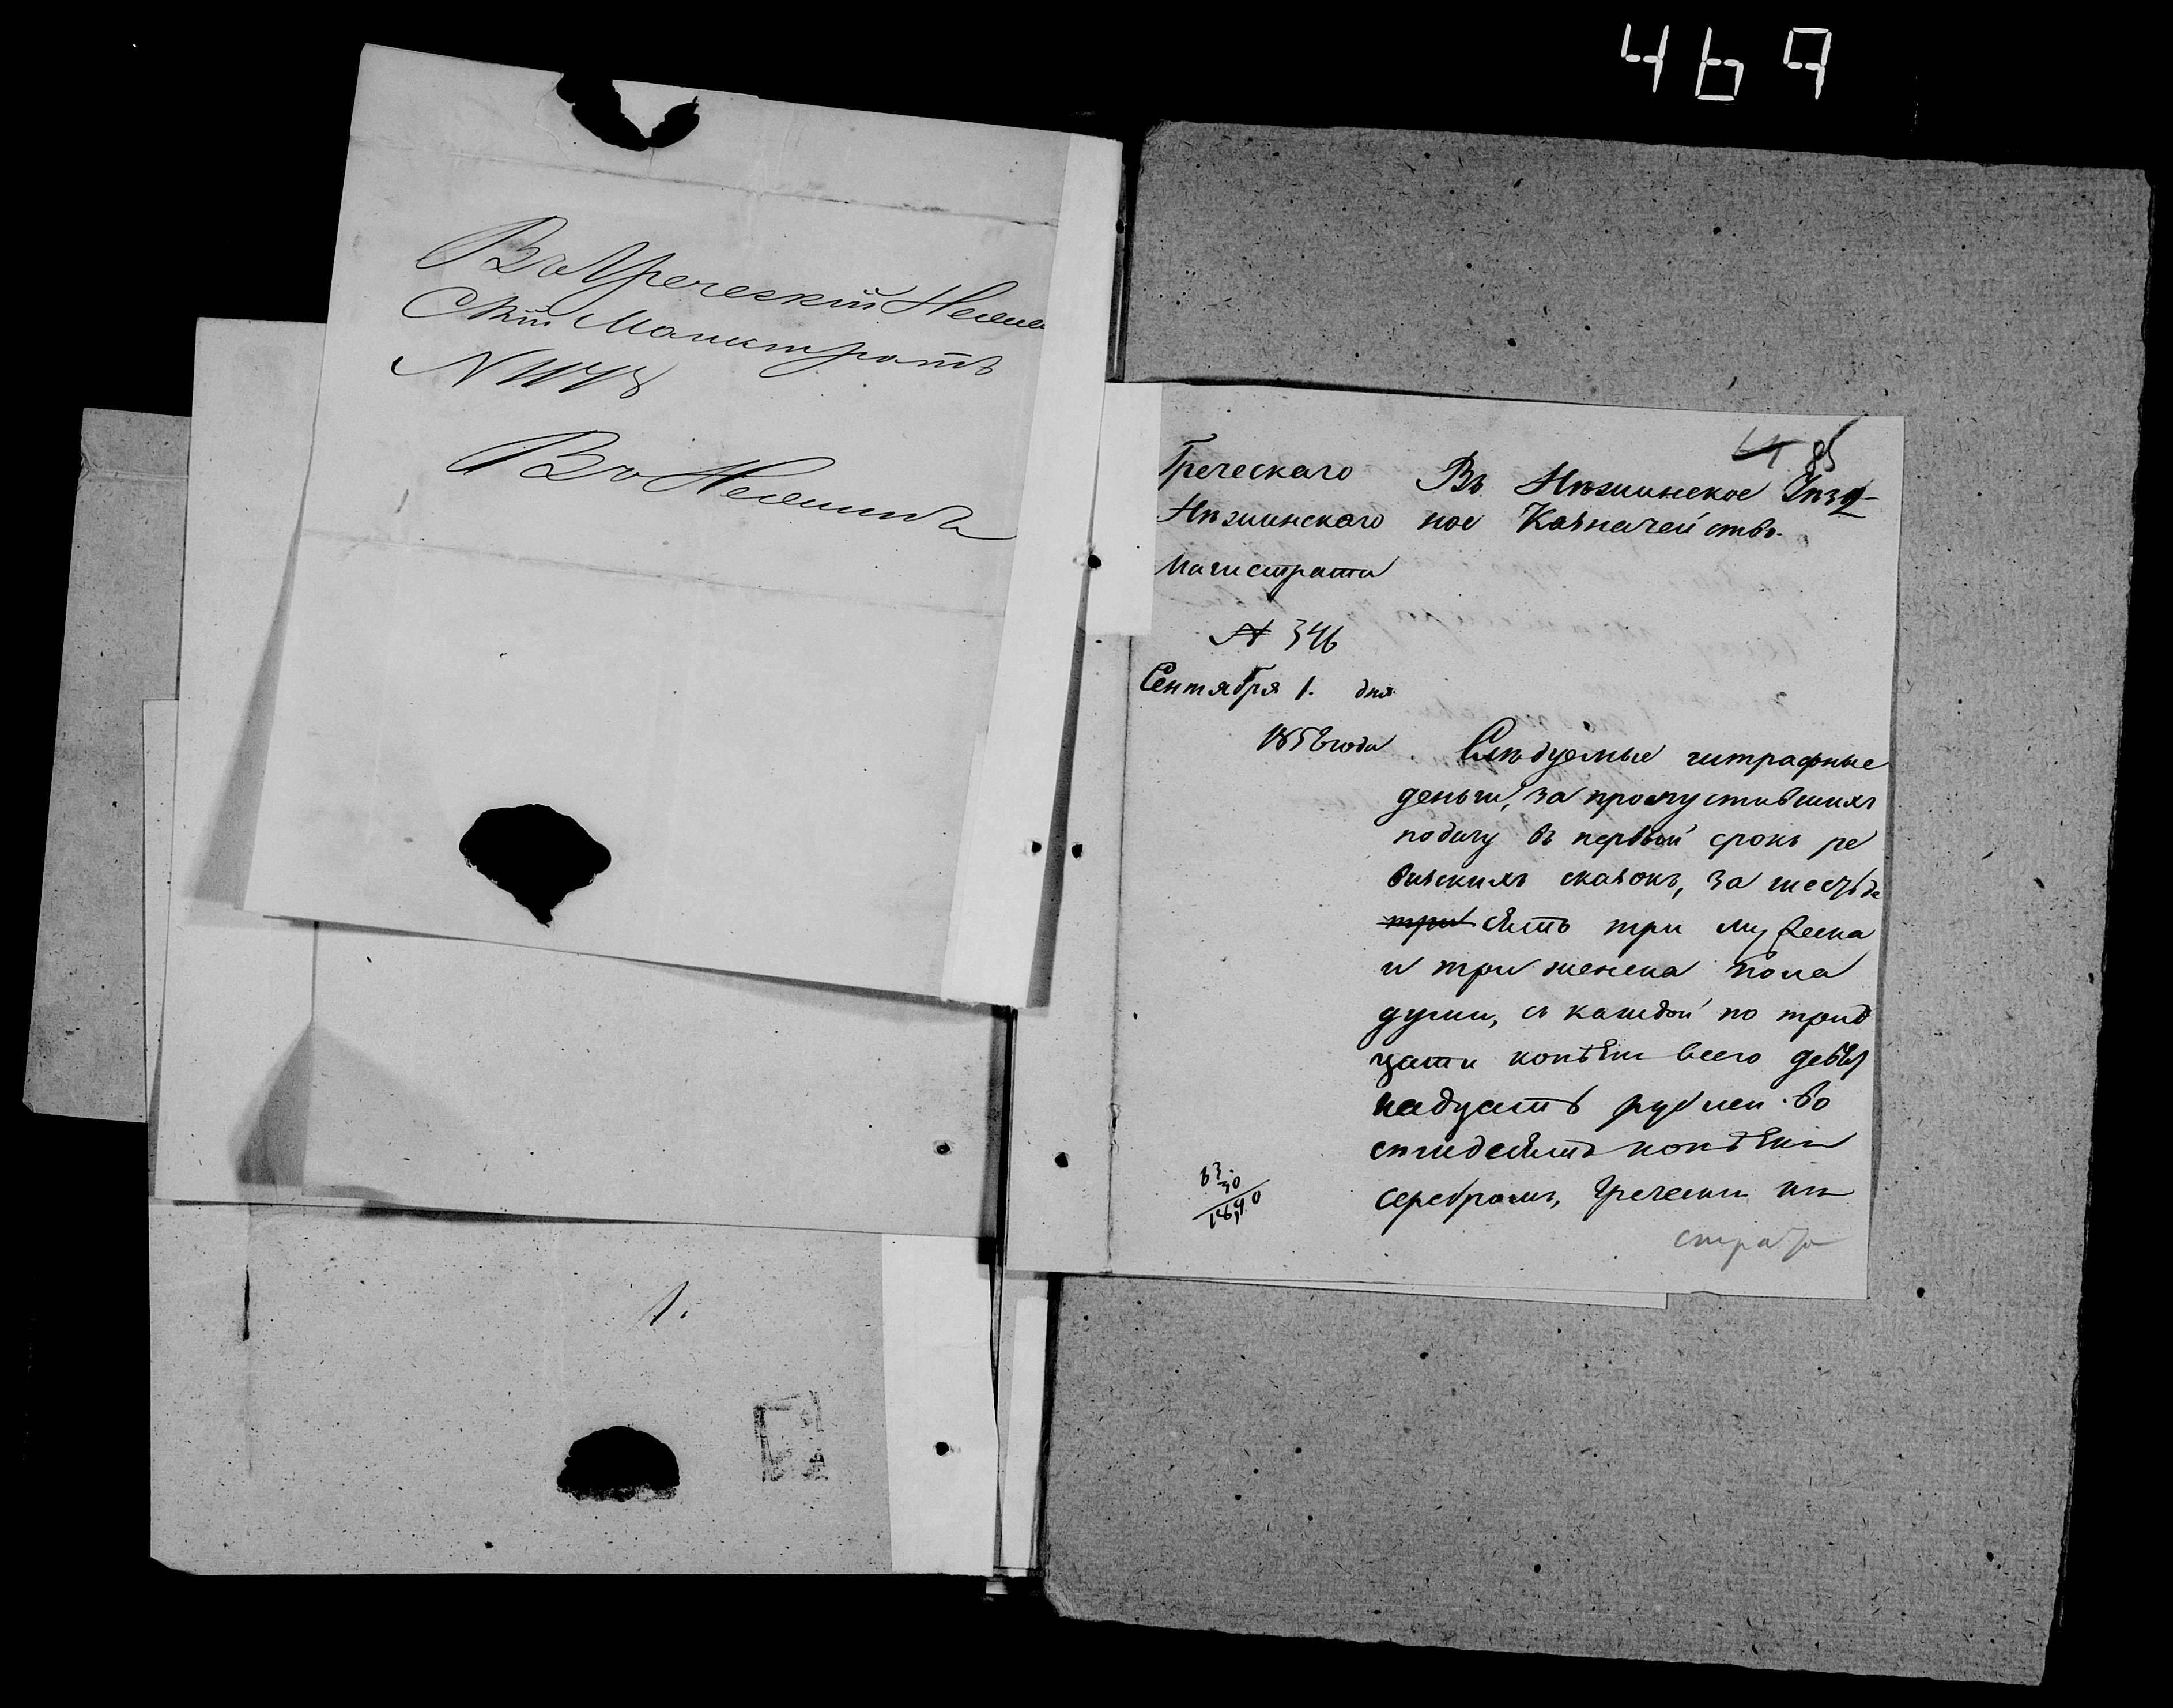 469
Въ Греческій Нежин
Скій Магистратъ
Въ Нежинъ
1.
85
Греческаго
Нѣжинскаго
Магистрата
№ 346
Сентября 1. дня
1858 года
Въ Нѣжинское Уѣзд-
ное Казначейство.
Слѣдуемые штрафные
деньги, за пропустившихъ
подачу въ первый срокъ ре
визскихъ сказокъ, за шестьде
три сятъ три мужеска
и три женска пола
души, съ каждой по трид
цати копѣекъ всего девят
надцать рублей во
семдесятъ копѣекъ
серебромъ, Греческій
63.
30
1890